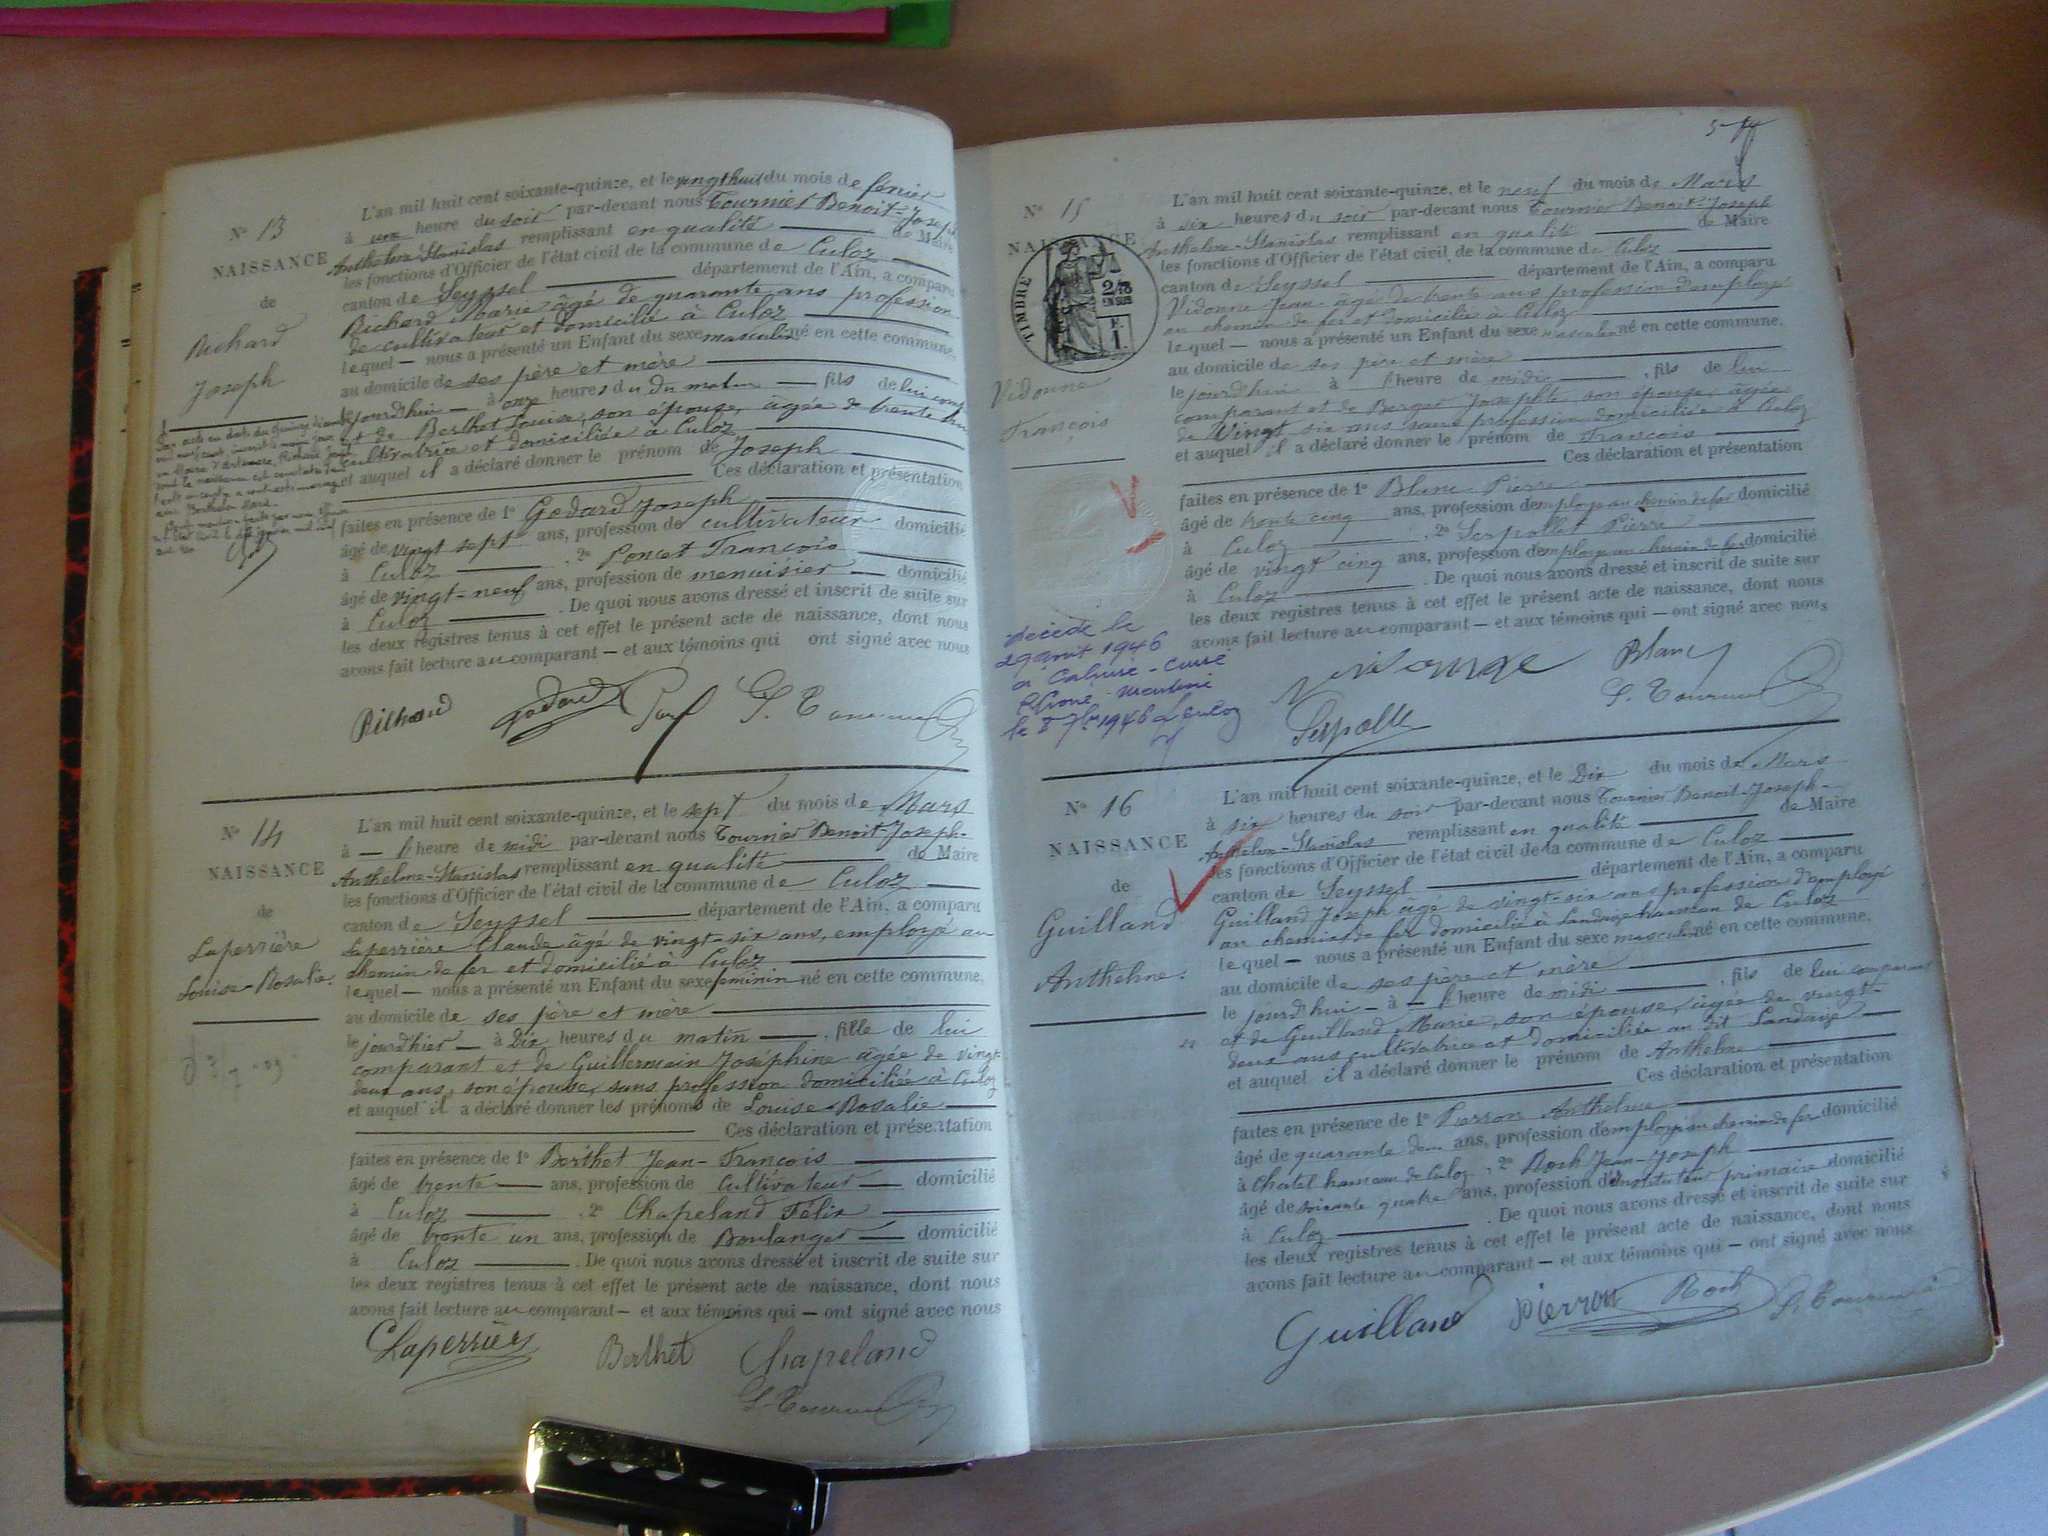 N° 13
NAISSANCE
de
Richard
Joseph
L'an mil huit cent soixante-quinze, et le vingt huit du mois de février
à une heure du soir par-devant nous Tournier Benoit-Joseph
Anthelme-Stanislas remplissant en qualité de Maire
les fonctions d'Officier de l'état civil de la commune de Culoz
canton de Seyssel département de l'Ain, a comparu
Richard Marie âgé de quarante ans profession
de cultivateur et domicilié à Culoz
lequel nous a présenté un Enfant du sexe masculin né en cette commune,
au domicile de ses père et mère
le jourd'hui à onze heures du du matin fils de lui comp-
et de Berthet Louise, son épouse, âgée de trente
cultivatrice et domiciliée à Culoz
et auquel il a déclaré donner le prénom de Joseph
Ces déclaration et présentation
faites en présence de 1° Godard Joseph
âgé de vingt sept ans, profession de cultivateur domicilié
à Culoz , 2° Poncet François
âgé de vingt-neuf ans, profession de menuisier domicilié
à Culoz . De quoi nous avons dressé et inscrit de suite sur
les deux registres tenus à cet effet le présent acte de naissance, dont nous
avons fait lecture au comparant — et aux témoins qui ont signé avec nous
Richard Godard
N° 14
NAISSANCE
de
Laperrière
Louise-Rosalie.
L'an mil huit cent soixante-quinze, et le sept du mois de Mars
à — l'heure de midi par-devant nous Tournier Benoit-Joseph-
Anthelme-Stanislas remplissant en qualité de Maire
les fonctions d'Officier de l'état civil de la commune de Culoz
canton de Seyssel département de l'Ain, a comparu
Laperrière Claude âgé de vingt-six ans, employé au
chemin de fer et domicilié à Culoz
lequel — nous a présenté un Enfant du sexe féminin né en cette commune,
au domicile de ses père et mère
le jourd'hier — à Dix heures du matin , fille de lui
comparant et de Guillermain Joséphine âgée de vingt-
deux ans, son épouse, sans profession domiciliée à Culoz
et auquel il a déclaré donner les prénoms de Louise-Rosalie
Ces déclaration et présentation
faites en présence de 1° Berthet Jean-François
âgé de trente ans, profession de cultivateur domicilié
à Culoz , 2° Chapeland Félix
âgé de trente un ans, profession de Boulanger domicilié
à Culoz . De quoi nous avons dressé et inscrit de suite sur
les deux registres tenus à cet effet le présent acte de naissance, dont nous
avons fait lecture au comparant — et aux témoins qui — ont signé avec nous
Laperrière Berthet Chapeland
N° 15
NAISSANCE
TIMBRE
Vidonne
François
décédé le
29 août 1946
à Caluire-Cuire
Rhône
L'an mil huit cent soixante-quinze, et le neuf du mois de Mars
à six heures du soir par-devant nous Tournier Benoit-Joseph
Anthelme-Stanislas remplissant en qualité de Maire
les fonctions d'Officier de l'état civil de la commune de Culoz
canton de Seyssel département de l'Ain, a comparu
Vidonne Jean âgé de trente ans profession d'employé
au chemin de fer et domicilié à Culoz
lequel — nous a présenté un Enfant du sexe masculin né en cette commune,
au domicile de ses père et mère
le jourd'hui à l'heure de midi , fils de lui
comparant et de Josephte, son épouse, âgée
de vingt six ans sans profession domiciliée à Culoz
et auquel il a déclaré donner le prénom de François
Ces déclaration et présentation
faites en présence de 1° Blanc Pierre
âgé de trente cinq ans, profession d'employé au chemin de fer domicilié
à Culoz , 2° Serpollet Pierre
âgé de vingt cinq ans, profession d'employé au chemin de fer domicilié
à Culoz . De quoi nous avons dressé et inscrit de suite sur
les deux registres tenus à cet effet le présent acte de naissance, dont nous
avons fait lecture au comparant — et aux témoins qui — ont signé avec nous,
Vidonne Blanc
N° 16
NAISSANCE
de
Guilland
Anthelme.
L'an mil huit cent soixante-quinze, et le Dix du mois de Mars
à six heures du soir par-devant nous Tournier Benoit-Joseph-
Anthelme-Stanislas remplissant en qualité de Maire
les fonctions d'Officier de l'état civil de la commune de Culoz
canton de Seyssel département de l'Ain, a comparu
Guilland Joseph âgé de vingt-six ans profession d'employé
au chemin de fer domicilié à Landaize hameau de Culoz
lequel — nous a présenté un Enfant du sexe masculin né en cette commune,
au domicile de ses père et mère
le jourd'hui — à — l'heure de midi , fils de lui comparant
et de Guilland Marie, son épouse, âgée de vingt-
deux ans cultivatrice et domiciliée au dit Landaize
et auquel il a déclaré donner le prénom de Anthelme
Ces déclaration et présentation
faites en présence de 1° Pierron Anthelme
âgé de quarante deux ans, profession d'employé au chemin de fer domicilié
à Chatel hameau de Culoz , 2° Roch Jean-Joseph
âgé de soixante quatre ans, profession d'instituteur primaire domicilié
à Culoz . De quoi nous avons dressé et inscrit de suite sur
les deux registres tenus à cet effet le présent acte de naissance, dont nous
avons fait lecture au comparant — et aux témoins qui — ont signé avec nous
Guilland Pierron Roch